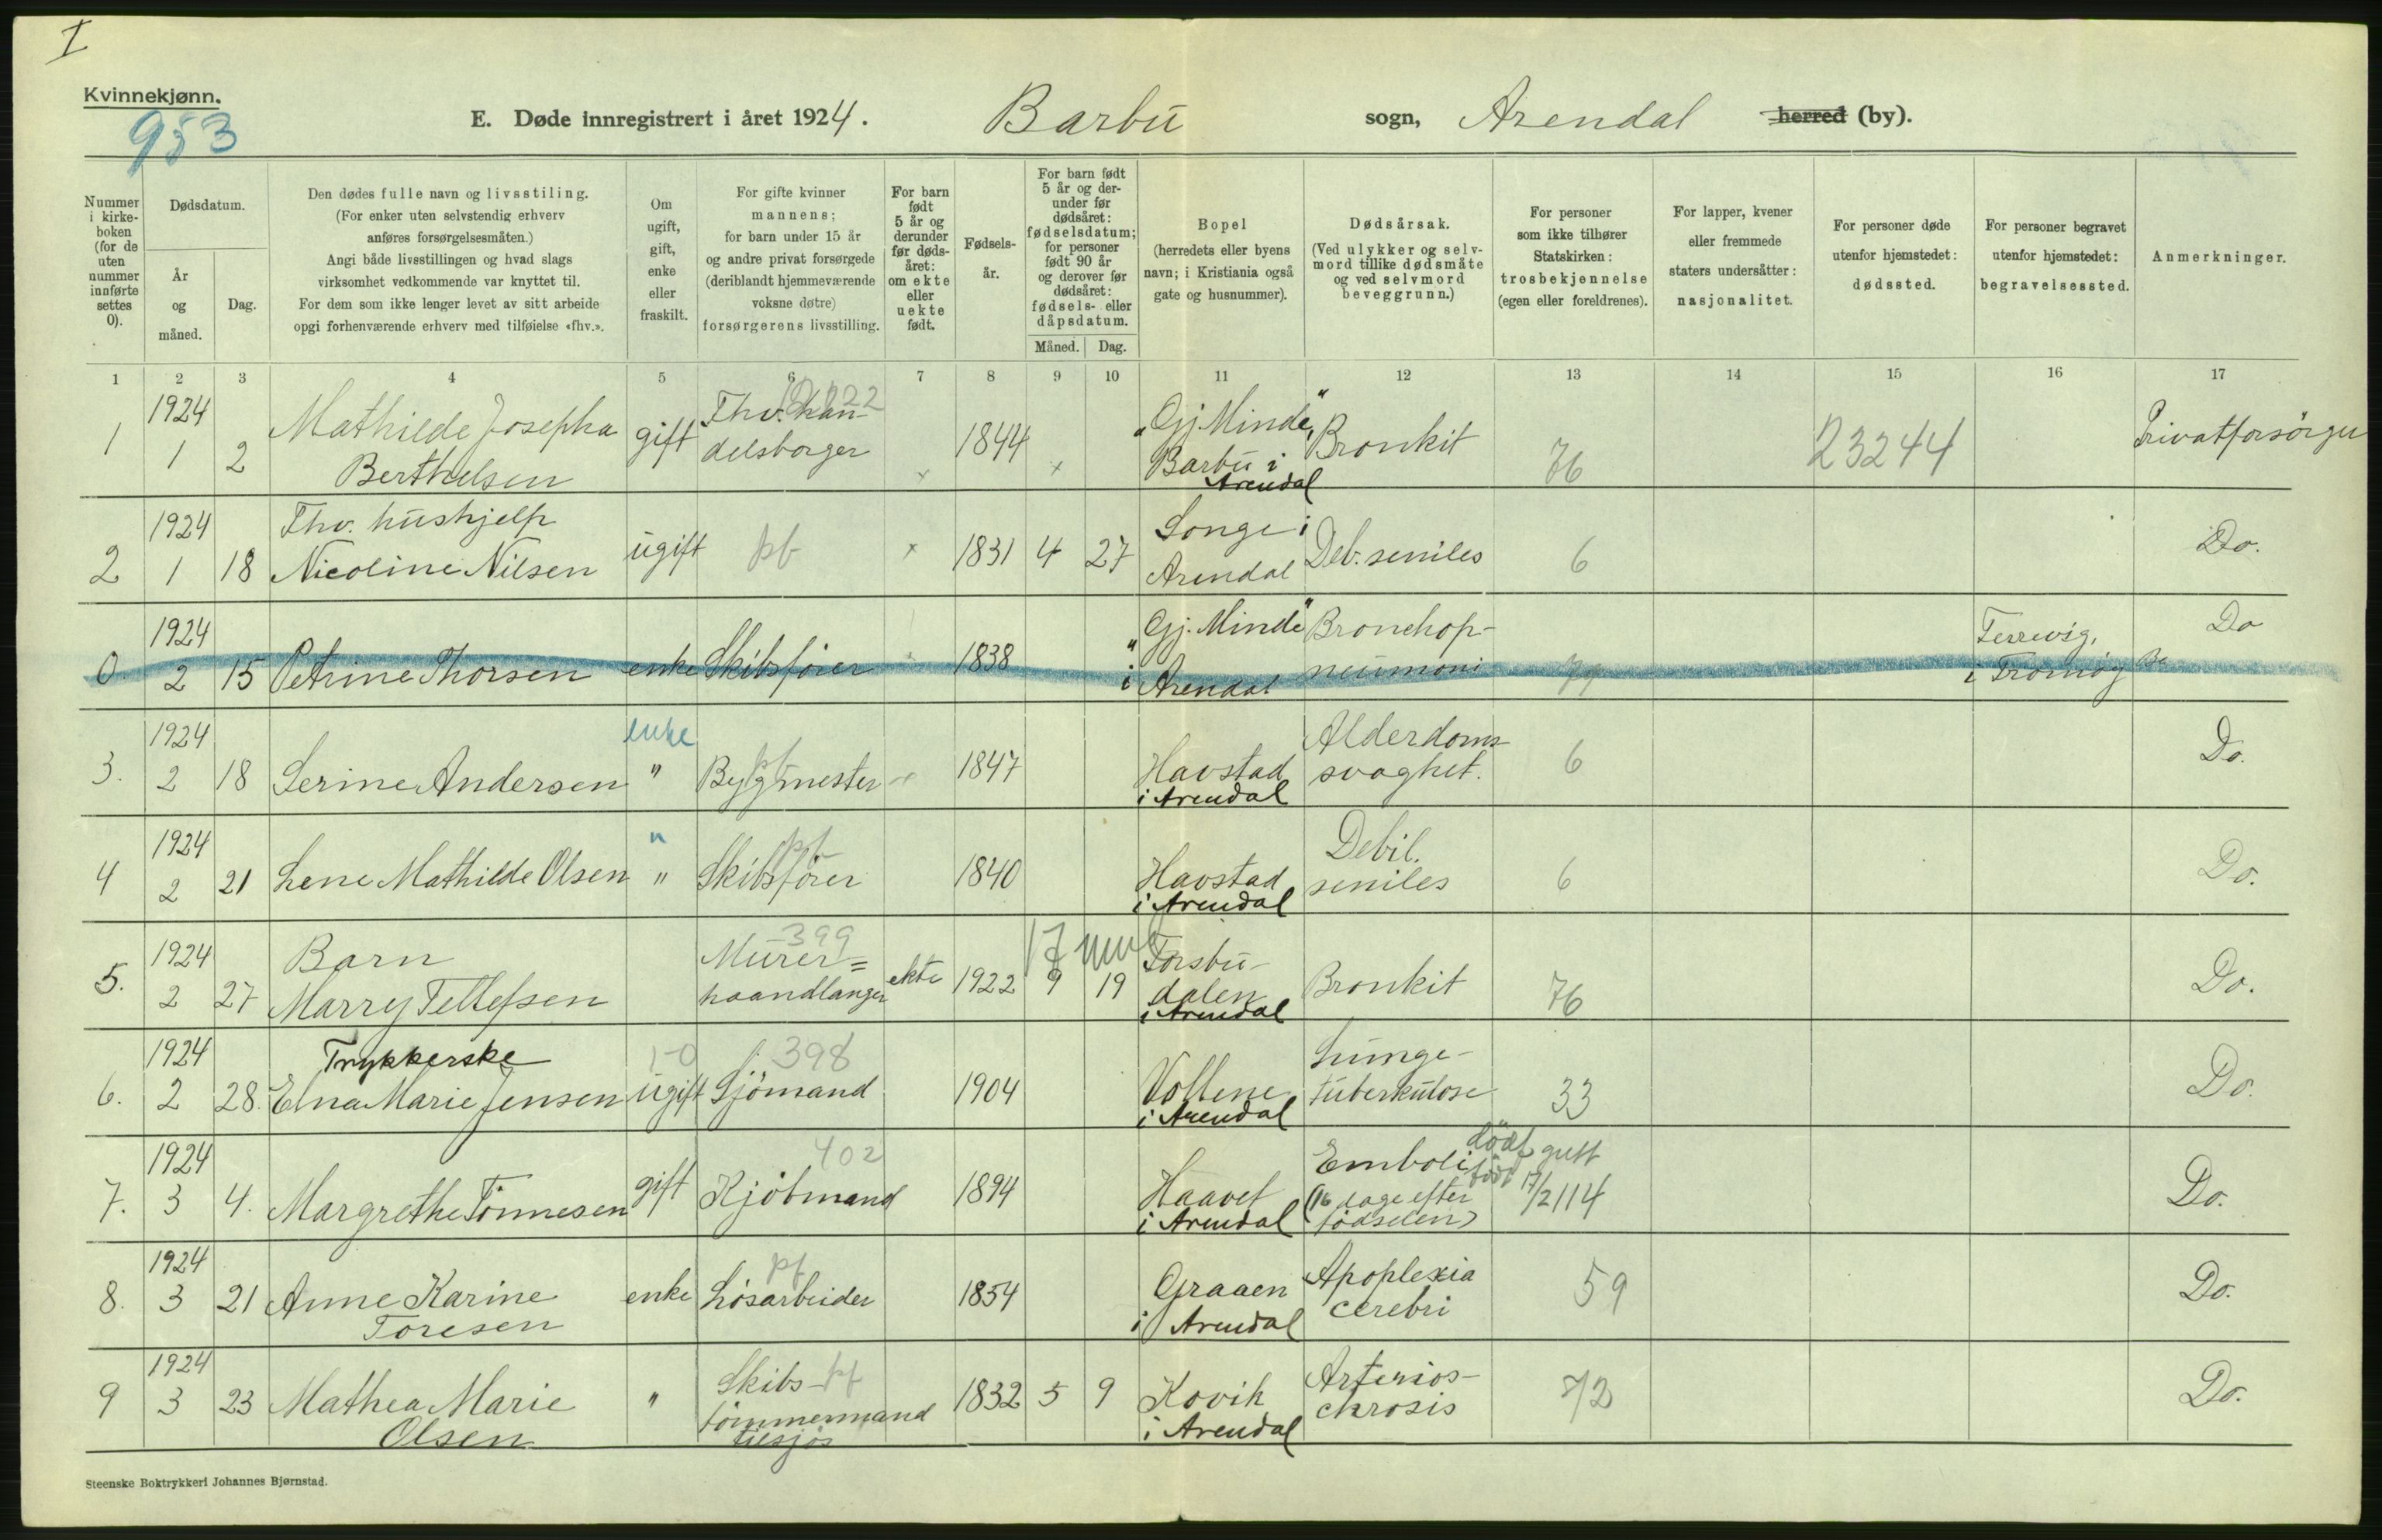 I
Kvinnekjønn.
953
E. Døde innregistrert i året 1924. Barbu sogn, Arendal herred (by).
Nummer i kirkeboken (for de uten nummer innførte settes 0).
Dødsdatum.
År og måned.
Dag.
Den dødes fulle navn og livsstiling.
(For enker uten selvstendig erhverv
anføres forsørgelsesmåten.)
Angi både livsstillingen og hvad slags
virksomhet vedkommende var knyttet til.
For dem som ikke lenger levet av sitt arbeide
opgi forhenværende erhverv med tilføielse «fhv.».
Om ugift, gift, enke eller fraskilt.
For gifte kvinner
mannens;
for barn under 15 år
og andre privat forsørgede
(deriblandt hjemmeværende
voksne døtre)
forsørgerens livsstilling.
For barn født 5 år og derunder før dødsåret: om ekte eller uekte født.
Fødselsår.
For barn født 5 år og derunder før dødsåret: fødselsdatum; for personer født 90 år og derover før dødsåret: fødsels- eller dåpsdatum.
Måned. Dag.
Bopel
(herredets eller byens
navn; i Kristiania også
gate og husnummer).
Dødsårsak.
(Ved ulykker og selvmord tillike dødsmåte
og ved selvmord
beveggrunn.)
For personer
som ikke tilhører
Statskirken:
trosbekjennelse
(egen eller foreldrenes).
For lapper, kvener
eller fremmede
staters undersåtter:
nasjonalitet.
For personer døde
utenfor hjemstedet:
dødssted.
For personer begravet
utenfor hjemstedet:
begravelsessted.
Anmerkninger.
1 2 3 4 5 6 7 8 9 10 11 12 13 14 15 16 17
1 1924 1 2 Mathilde Josepha Berthelsen gift Fhv. handelsborger x 1844 x "Gj. Minde", Barbu i Arendal Bronkit 76 23244 Privatforsørget
2 1924 1 18 Fhv. hushjelp Nicoline Nilsen ugift pf x 1831 4 27 Songe i Arendal Deb. seniles 6 Do.
0 1924 2 15 Petrine Thorsen enke Skibsfører 1838 "Gj. Minde" i Arendal Bronchopneumoni 79 i Tromøy Do
3. 1924 2 18 Serine Andersen enke " Bygmester pf 1847 Havstad i Arendal Alderdomssvaghet. 6 Do.
4 1924 2 21 Lene Mathilde Olsen " " Skibsfører pf 1840 Havstad i Arendal Debil. seniles 6 Do.
5. 1924 2 27 Barn Marry Tellefsen 399 Murer= haandlanger ekte 1922 9 19 17 mnd Torsbudalen i Arendal Bronkit 76 Do.
6. 1924 2 28. Trykkerske Elna Marie Jensen ugift 398 Sjömand 1904 Vollene i Arendal Lungetuberkulose 33 Do.
7. 1924 3 4. Margrethe Tönnesen gift 402 Kjöbmand 1894 Haavet i Arendal Emboli (16 dage efter fødselen) født 17/2 114 Do.
8. 1924 3 21 Anne Karine Toresen enke pf Løsarbeider 1854 Graaen i Arendal Apoplexia cerebri 59 Do.
9 1924 3 23 Mathea Marie Olsen " Skibs pf tömmermand tilsjøs 1832 5 9 Kovik i Arendal Arterioschrosis 72 Do.
Steenske Boktrykkeri Johannes Bjørnstad.